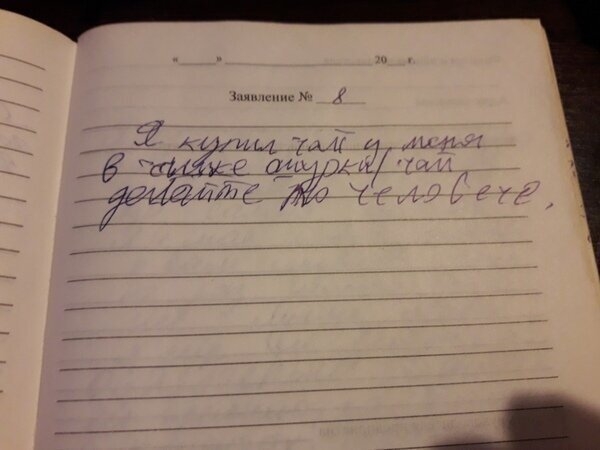 « » 20 г.
Заявление № 8
Я купил чай у меня
в чашке огурки/чай
делайте по человече.